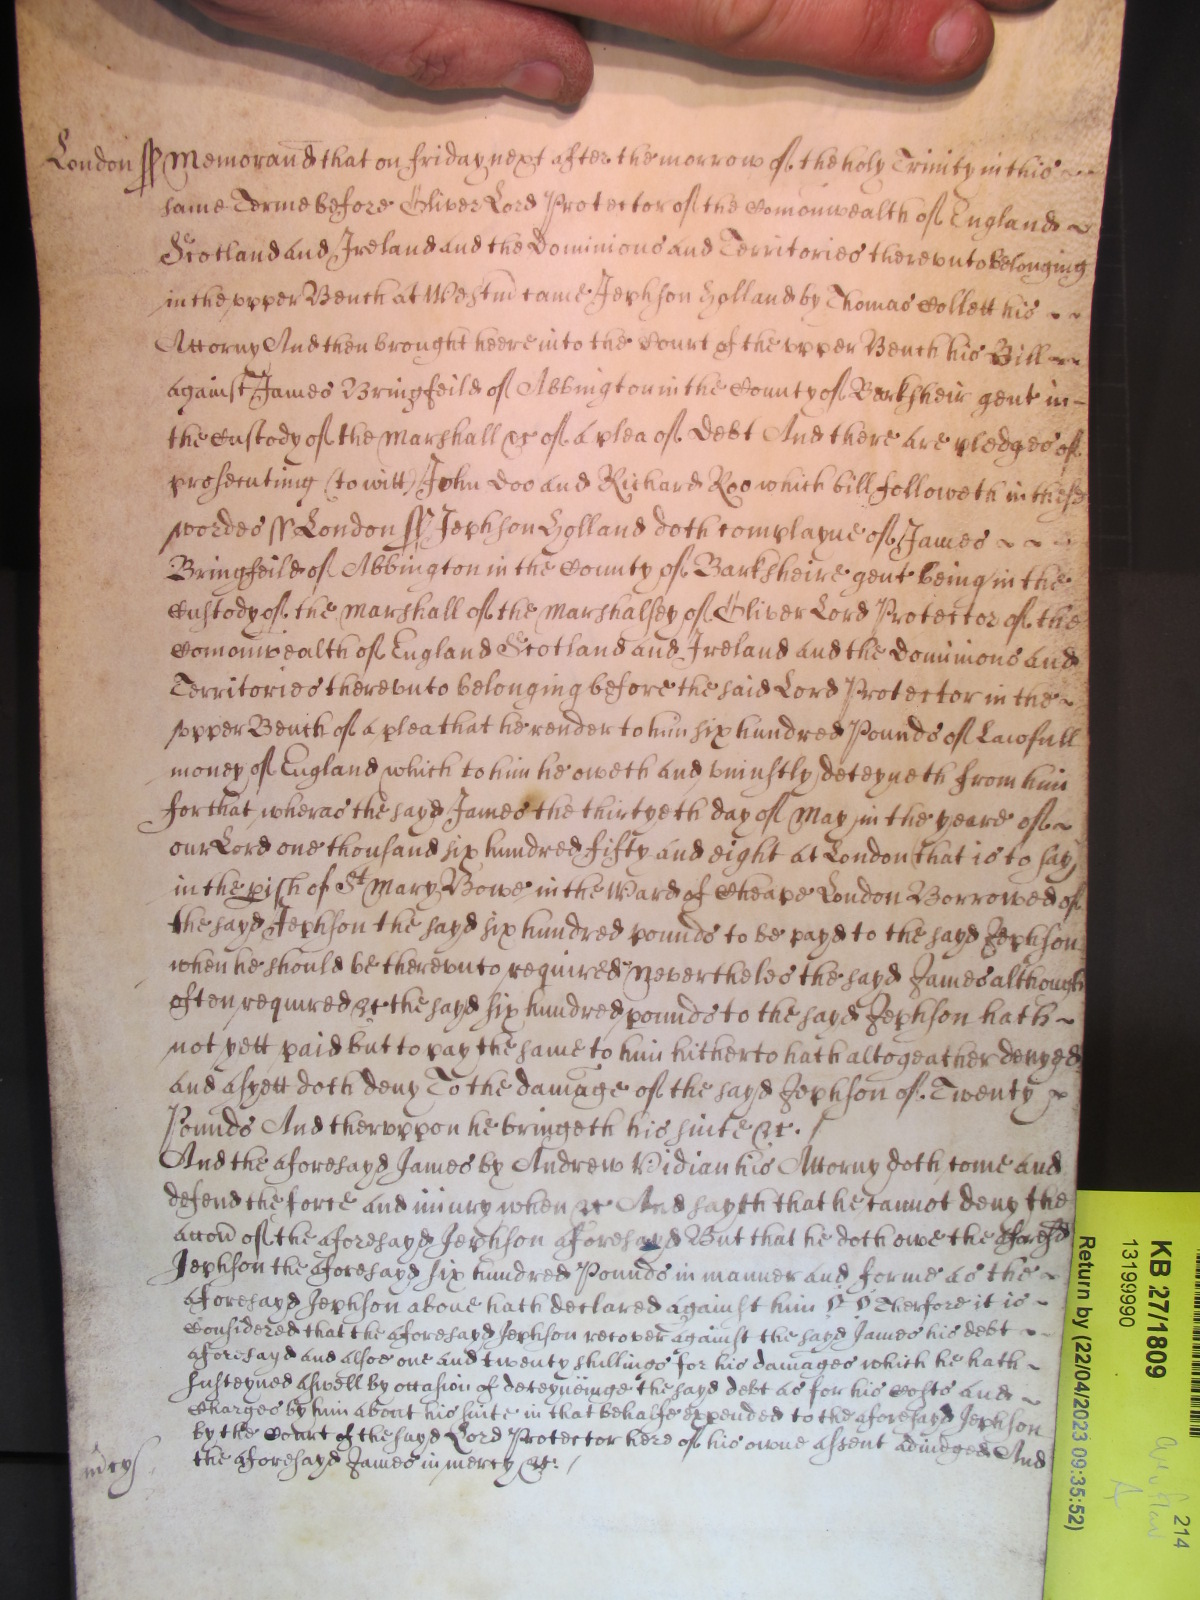 London ss Memorand that on friday next after the morrow of the holy Trinity in this
same Terme before Oliver Lord Protector of the Comonwealth of England
Scotland and Ireland and the Dominions and Territories therevnto belonging
in the vpper Bench at Westm came Jephson Holland by Thomas Collett his
Attorny And then brought heere into the Court of the vpper Bench his Bill
against James Bringfeild of Abbington in the County of Barksheir gent in
the Custody of the Marshall &c of a plea of Debt And there are pledges of
prosecuting (to witt) John Doo and Richard Roo which bill followeth in these
wordes ss London ss Jephson Holland doth complayne of James
Bringfeild of Abbington in the County of Barksheire gent being in the
Custody of the Marshall of the Marshalsey of Oliver Lord Protector of the
Comonwealth of England Scotland and Ireland and the Dominions and
Territories therevnto belonging before the said Lord Protector in the
vpper Bench of a plea that he render to him six hundred Pounds of Lawfull
money of England which to him he oweth and vniustly deteyneth from him
for that wheras the sayd James the thirtyeth day of May in the yeare of
our Lord one thousand six hundred fifty and eight at London that is to say
in the pish of St Mary Bowe in the Ward of Cheape London Borrowed of
the sayd Jephson the sayd six hundred pounds to be payd to the sayd Jephson
when he should be therevnto required Neverthelesse the sayd James although
often required &c the sayd six hundred pounds to the sayd Jephson hath
not yett paid but to pay the same to him hitherto hath altogeather denyed
and as yett doth deny To the damage of the sayd Jephson of Twenty
Pounds And thervppon he bringeth his suite &c.
And the aforesayd James by Andrew Vidian his Attorny doth come and
defend the force and iniury when &c And sayth that he cannot deny the
accon of the aforesayd Jephson aforesayd But that he doth owe the aforesd
Jephson the aforesayd six hundred Pounds in manner and forme as the
aforesayd Jephson aboue hath declared against him Therfore it is
Considered that the aforesayd Jephson recover against the sayd James his debt
aforesayd and alsoe one and twenty shillings for his damages which he hath
Susteyned aswell by occasion of deteyneinge the sayd debt as for his Costs and
Charges by him about his suite in that behalfe expended to the aforesayd Jephson
by the Court of the sayd Lord Protector here of his owne assent adiudged And
mcy the aforesayd James in mercy &c:
KB 27/1809
13199990
Return by (22/04/2023 09:35:52)
214